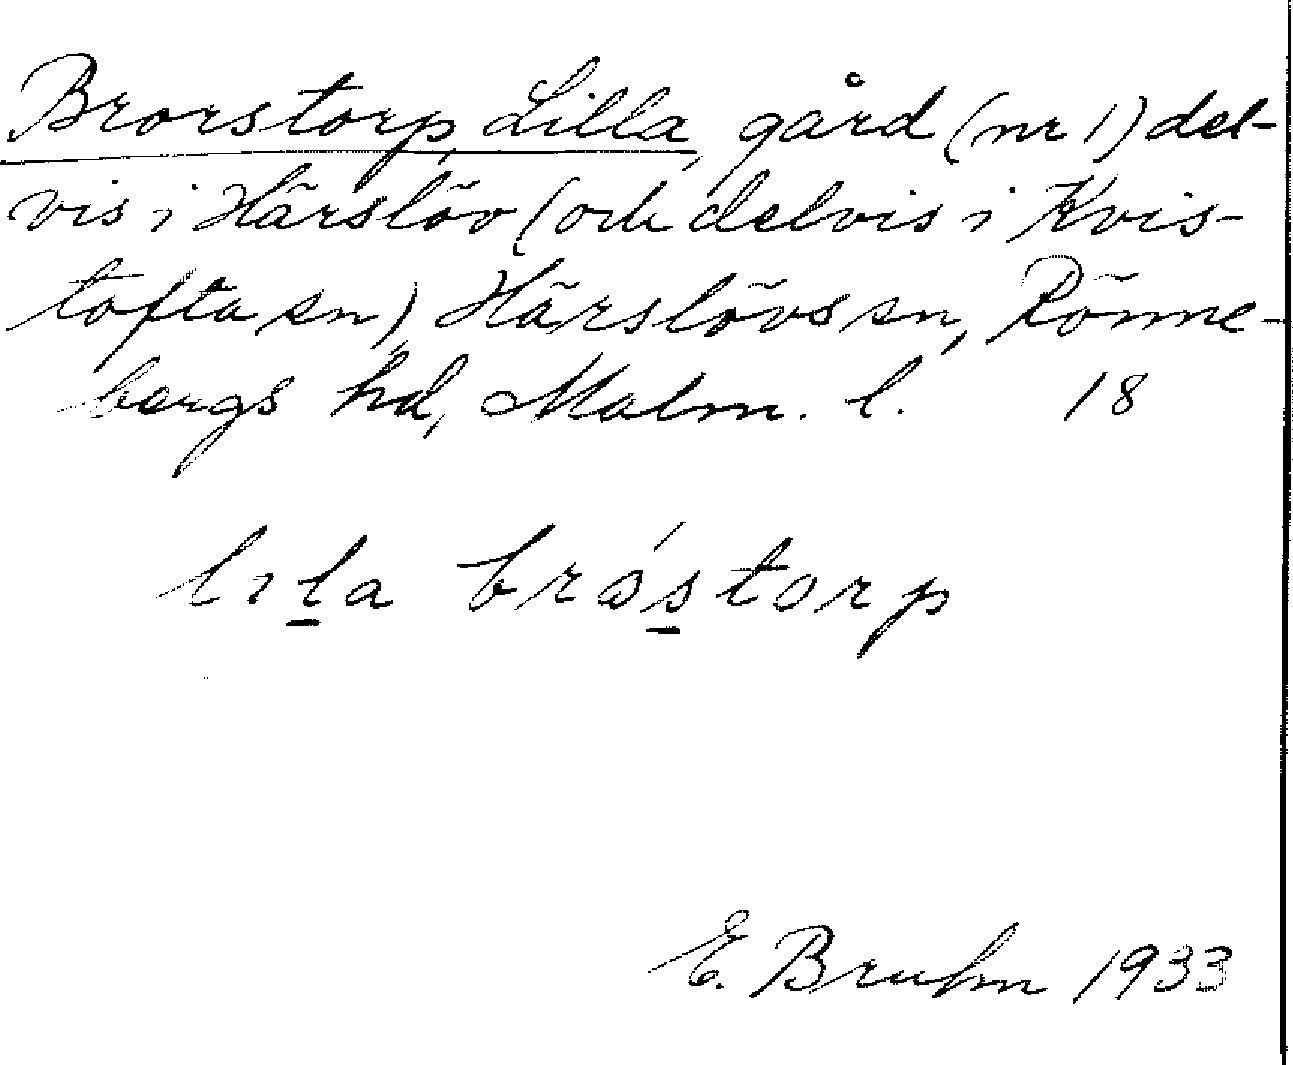 Brorstorp, Lilla, gård (nr 1) del-
vis i Härslöv (och delvis i Kvis-
tofta sn), Härslövs sn, Rönne-
bergs hd, Malm. l. 18
lıl̲a brós̲torp
E. Bruhn 1933